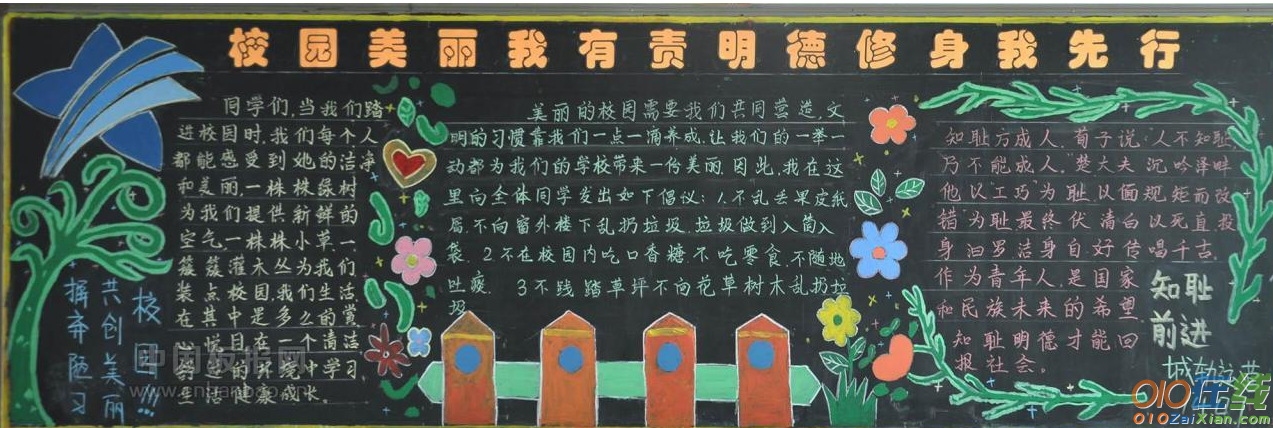 校园美丽我有责明德修身我先行
同学们,当我们踏
进校园时,我们每个人
都能感受到她的洁净
和美丽,一株株绿树
为我们提供新鲜的
空气一株株小草一
簇簇灌木丛为我们
装点校园,我们生活
在其中是多么的赏
心悦目在一个清洁
的环境中学习,
生活健康成长.
校园!!!
共创美丽
摒弃陋习
美丽的校园需要我们共同营造,文
明的习惯靠我们一点一滴养成,让我们的一举一
动都为我们的学校带来一份美丽.因此,我在这
里向全体同学发出如下倡议:1.不乱丢果皮纸
屑,不向窗外楼下乱扔垃圾,垃圾做到入篼入
袋.2不在校园内吃口香糖不吃零食,不随地
吐痰.3不践踏草坪不向花草树木乱扔垃
圾
知耻方成人,荀子说:"人不知耻,
乃不能成人."楚大夫沉吟泽畔
他以"工巧"为耻以偭规矩而改
错"为耻最终伏清白以死直,投
身汩罗洁身自好传唱千古,
作为青年人,是国家
和民族未来的希望
知耻明德才能回
报社会。
知耻
前进
城轨
中国板报网
010在线
010ZaiXian.com